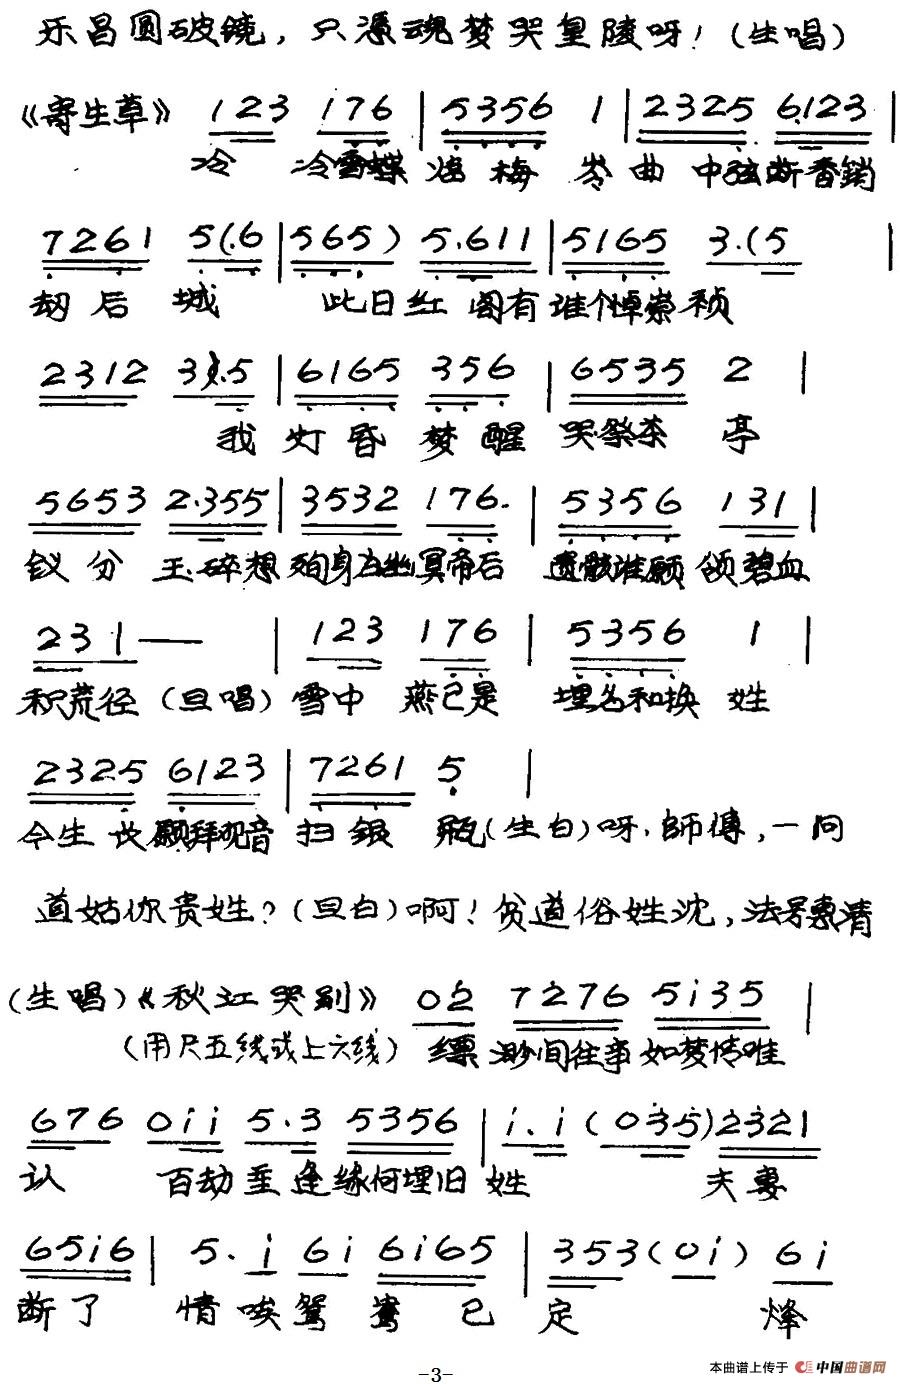 乐昌圆破镜，只凭魂梦哭皇陵呀！（生唱）
《寄生草》 123 176 | 5356 1 | 2325 6123 |
冷 冷雪蝶 烟 梅 岑 曲 中弦断香销
7261 5(.6 | 565) 5.611 | 5165 3.(5 |
劫 后 城 此日红 阁有 谁个悼崇祯
2312 3.5 | 6165 356 | 6535 2 |
我 灯 昏 梦 醒 哭祭茶 亭
5653 2.355 | 3532 176. | 5356 131 |
钗 分 玉碎想 殉身在幽冥帝后 遗骸谁愿 颂碧血
231 — | 123 176 | 5356 1 |
积荒径（旦唱）雪中 燕已是 埋名和换 姓
2325 6123 | 7261 5 |
今生 长愿拜观音 扫 银 瓶（生白）呀，師傅，一问
道姑你贵姓？（旦白）啊！贫道俗姓沈，法号惠清
（生唱）《秋江哭别》 02 7276 5i35 |
（用尺五线或上六线） 缥 渺间往事 如梦情难
676 0ii 5.3 5356 | i.i (035) 2321
认 百劫重 逢缘何埋旧 姓 夫妻
65i6 | 5.i 6i 6i65 | 353 (0i) 6i
断了 情唉鸳 鸯 已 定 烽
-3-
本曲谱上传于 中国曲谱网